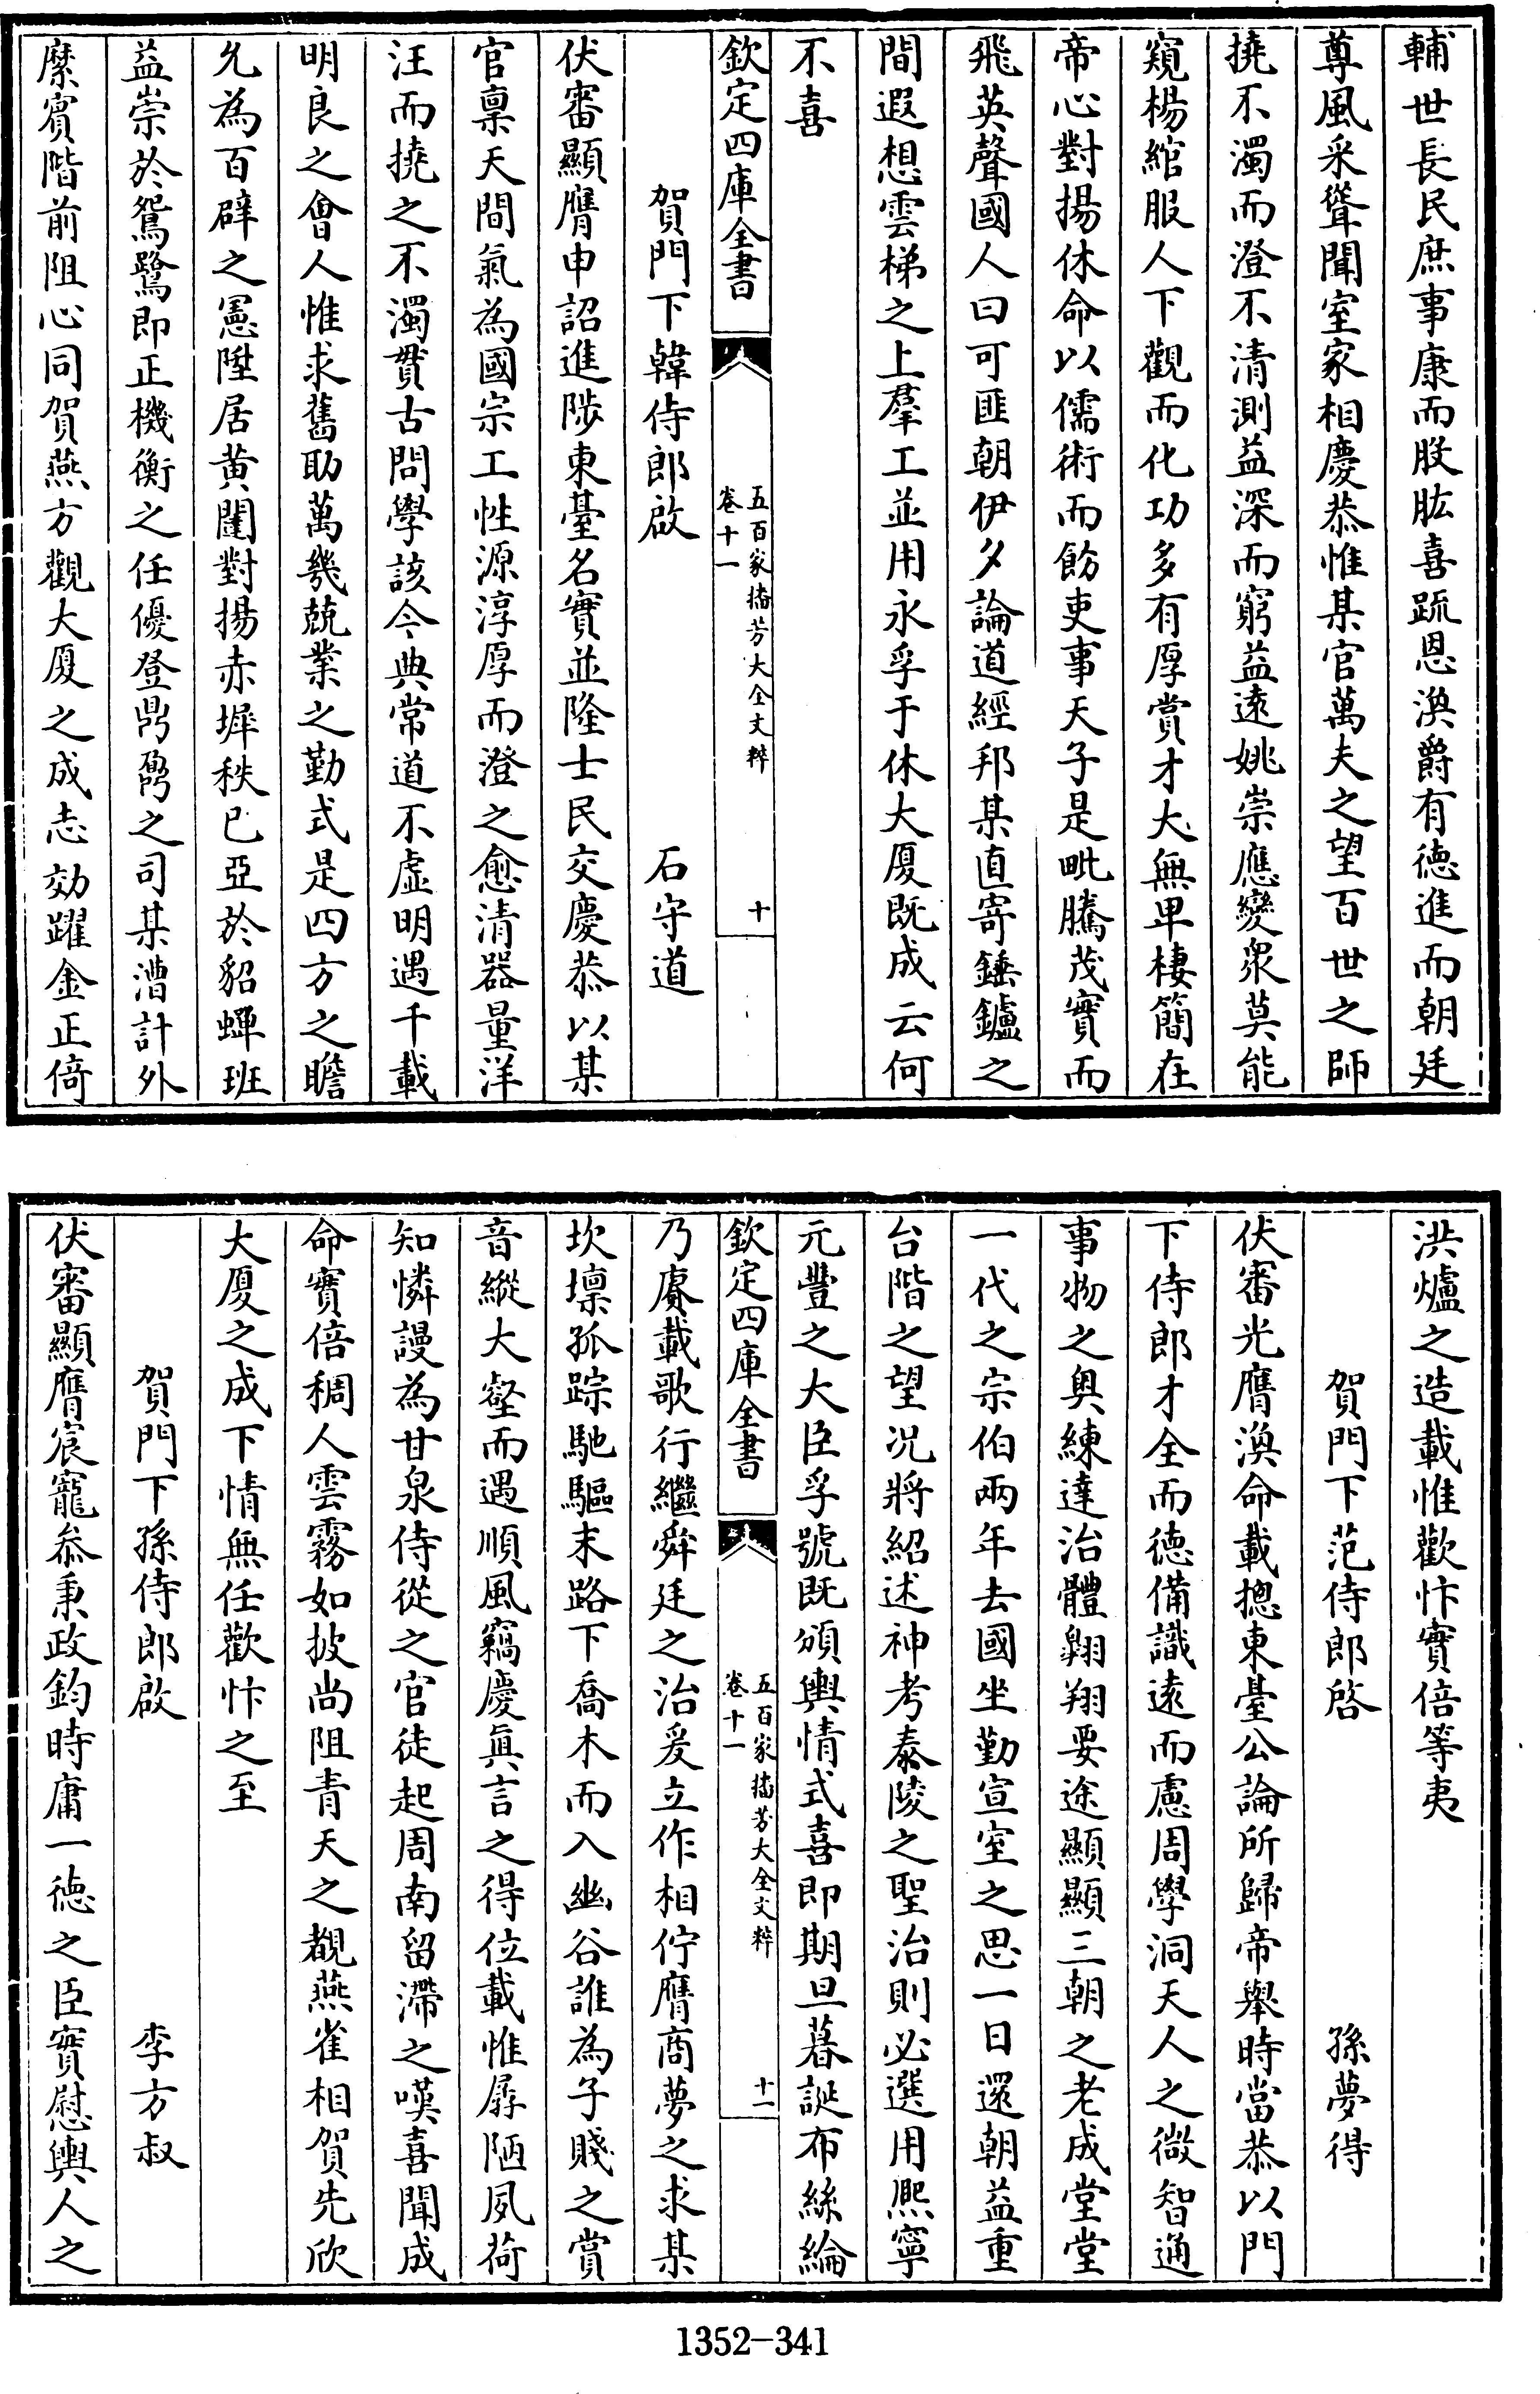 輔世長民庶事康而股肱喜䟽恩渙爵有徳進而朝廷
尊風采聳聞室家相慶恭惟某官萬夫之望百世之師
撓不濁而澄不清測益深而窮益遠姚崇應變衆莫能
窺楊綰服人下觀而化功多有厚賞才大無卑棲簡在
帝心對揚休命以儒術而飭吏事天子是毗騰茂實而
飛英聲國人曰可匪朝伊夕論道經邦某直寄錘鑪之
間遐想雲梯之上羣工並用永孚于休大厦既成云何
不喜
欽定四庫全書
五百家播芳大全文粹
卷十一
十
賀門下韓侍郎啟 石守道
伏審顯膺申詔進陟東臺名實並隆士民交慶恭以某
官禀天間氣為國宗工性源淳厚而澄之愈清器量洋
汪而撓之不濁貫古問學該今典常道不虛明遇千載
明良之會人惟求舊助萬幾兢業之勤式是四方之瞻
允為百辟之憲陞居黄闥對揚赤墀秩已亞於貂蟬班
益崇於鴛鷺即正機衡之任優登鼎鼐之司某漕計外
縻賓階前阻心同賀燕方觀大厦之成志効躍金正倚
洪爐之造載惟歡忭實倍等夷
賀門下范侍郎啓 孫夢得
伏審光膺渙命載揔東臺公論所歸帝舉時當恭以門
下侍郎才全而徳備識遠而慮周學洞天人之微智通
事物之奥練達治體翱翔要途顯顯三朝之老成堂堂
一代之宗伯兩年去國坐勤宣室之思一日還朝益重
台階之望况將紹述神考泰陵之聖治則必選用熈寧
元豐之大臣孚號既頒輿情式喜即期旦暮誕布絲綸
欽定四庫全書
五百家播芳大全文粹
卷十一
十一
乃賡載歌行繼舜廷之治爰立作相佇膺商夢之求某
坎壈孤踪馳驅末路下喬木而入幽谷誰為子賤之賞
音縱大壑而遇順風竊慶真言之得位載惟孱陋夙荷
知憐謾為甘泉侍從之官徒起周南留滯之嘆喜聞成
命實倍稠人雲霧如披尚阻青天之覩燕雀相賀先欣
大厦之成下情無任歡忭之至
賀門下孫侍郎啟 李方叔
伏審顯膺宸寵叅秉政鈞時庸一徳之臣實慰輿人之
1352-341